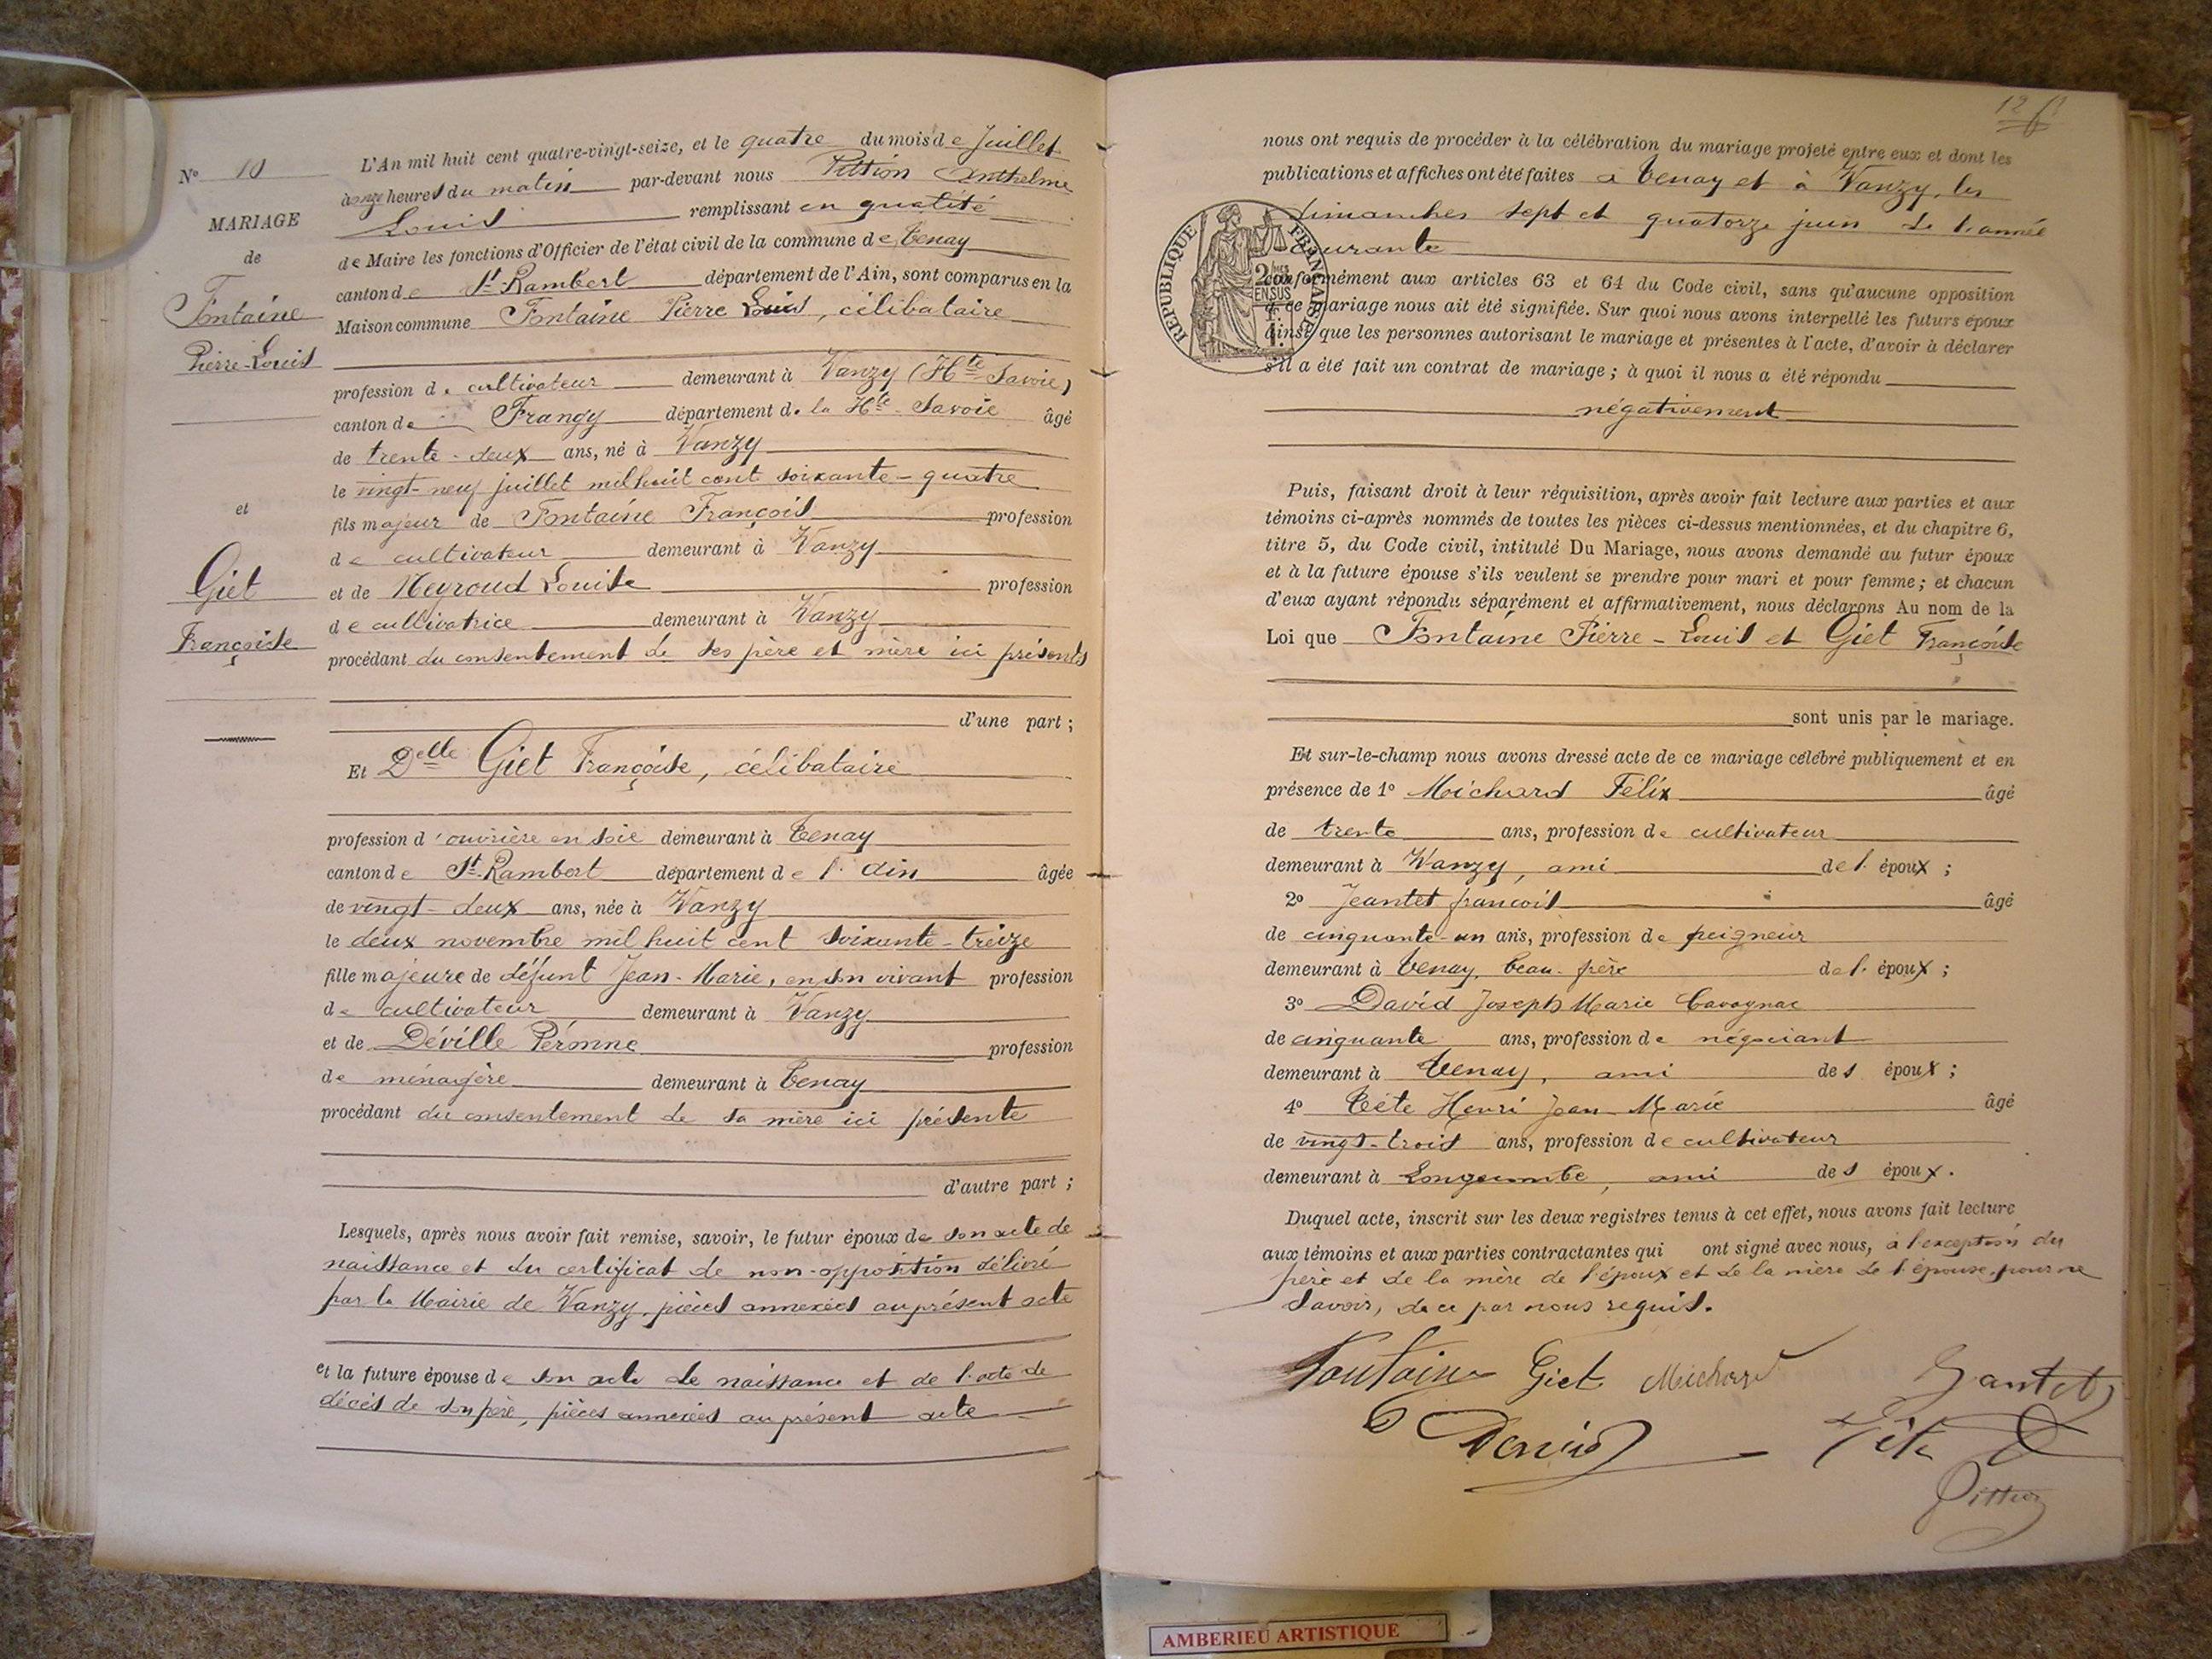 N° 10
MARIAGE
de
Fontaine
Pierre-Louis
et
Giet
Françoise
L'An mil huit cent quatre-vingt-seize, et le quatre du mois de Juillet
à onze heures du matin par-devant nous Pittion Anthelme
Louis remplissant en qualité
de Maire les fonctions d'Officier de l'état civil de la commune de Tenay
canton de St-Rambert département de l'Ain, sont comparus en la
Maison commune Fontaine Pierre Louis, célibataire
profession de cultivateur demeurant à Vanzy (Hte Savoie)
canton de Frangy département de la Hte-Savoie âgé
de trente-deux ans, né à Vanzy
le vingt-neuf juillet mil huit cent soixante-quatre
fils majeur de Fontaine François profession
de cultivateur demeurant à Vanzy
et de Neyroud Louise profession
de cultivatrice demeurant à Vanzy
procédant du consentement de ses père et mère ici présents
d'une part ;
Et Delle Giet Françoise, célibataire
profession d'ouvrière en soie demeurant à Tenay
canton de St-Rambert département de l'Ain âgée
de vingt-deux ans, née à Vanzy
le deux novembre mil huit cent soixante-treize
fille majeure de défunt Jean-Marie, en son vivant profession
de cultivateur demeurant à Vanzy
et de Déville Péronne profession
de ménagère demeurant à Tenay
procédant du consentement de sa mère ici présente
d'autre part ;
Lesquels, après nous avoir fait remise, savoir, le futur époux de son acte de
naissance et du certificat de non-opposition délivré
par la Mairie de Vanzy, pièces annexées au présent acte
et la future épouse de son acte de naissance et de l'acte de
décès de son père, pièces annexées au présent acte
12
nous ont requis de procéder à la célébration du mariage projeté entre eux et dont les
publications et affiches ont été faites à Tenay et à Vanzy, les
dimanches sept et quatorze juin de l'année
courante
RÉPUBLIQUE FRANÇAISE
2
EN SUS
conformément aux articles 63 et 64 du Code civil, sans qu'aucune opposition
à ce mariage nous ait été signifiée. Sur quoi nous avons interpellé les futurs époux
ainsi que les personnes autorisant le mariage et présentes à l'acte, d'avoir à déclarer
s'il a été fait un contrat de mariage ; à quoi il nous a été répondu
négativement
Puis, faisant droit à leur réquisition, après avoir fait lecture aux parties et aux
témoins ci-après nommés de toutes les pièces ci-dessus mentionnées, et du chapitre 6,
titre 5, du Code civil, intitulé Du Mariage, nous avons demandé au futur époux
et à la future épouse s'ils veulent se prendre pour mari et pour femme ; et chacun
d'eux ayant répondu séparément et affirmativement, nous déclarons Au nom de la
Loi que Fontaine Pierre-Louis et Giet Françoise
sont unis par le mariage.
Et sur-le-champ nous avons dressé acte de ce mariage célébré publiquement et en
présence de 1° Michard Félix âgé
de trente ans, profession de cultivateur
demeurant à Vanzy, ami de l'époux ;
2° Jeantet françois âgé
de cinquante-un ans, profession de peigneur
demeurant à Tenay, beau-frère de l'époux ;
3° David Joseph Marie Cavagnac
de cinquante ans, profession de négociant
demeurant à Tenay, ami des époux ;
4° Tête Henri Jean-Marie âgé
de vingt-trois ans, profession de cultivateur
demeurant à Longecombe, ami des époux.
Duquel acte, inscrit sur les deux registres tenus à cet effet, nous avons fait lecture
aux témoins et aux parties contractantes qui ont signé avec nous, à l'exception du
père et de la mère de l'époux et de la mère de l'épouse, pour ne
savoir, de ce par nous requis.
Fontaine Giet Michard Jantet
David Tête
Pittion
AMBERIEU ARTISTIQUE